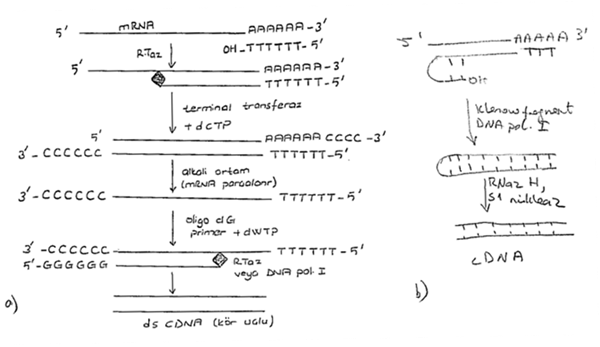 5' mRNA AAAAAA-3'
OH-TTTTTT-5'
RTaz
5' AAAAAA-3'
TTTTTT-5'
terminal transferaz
+dCTP
5' AAAAAA CCCC-3'
3'-CCCCCC TTTTTT-5'
alkali ortam
(mRNA parçalanır)
3'-CCCCCC TTTTTT-5'
oligo dG
primer +dNTP
3'-CCCCCC TTTTTT-5'
5'-GGGGGG RTaz
veya DNA pol. I
a)
ds cDNA (kör uçlu)
5' AAAAA 3'
TTT
OH
Klenow fragment
DNA pol. I
RNaz H,
S1 nükleaz
cDNA
b)